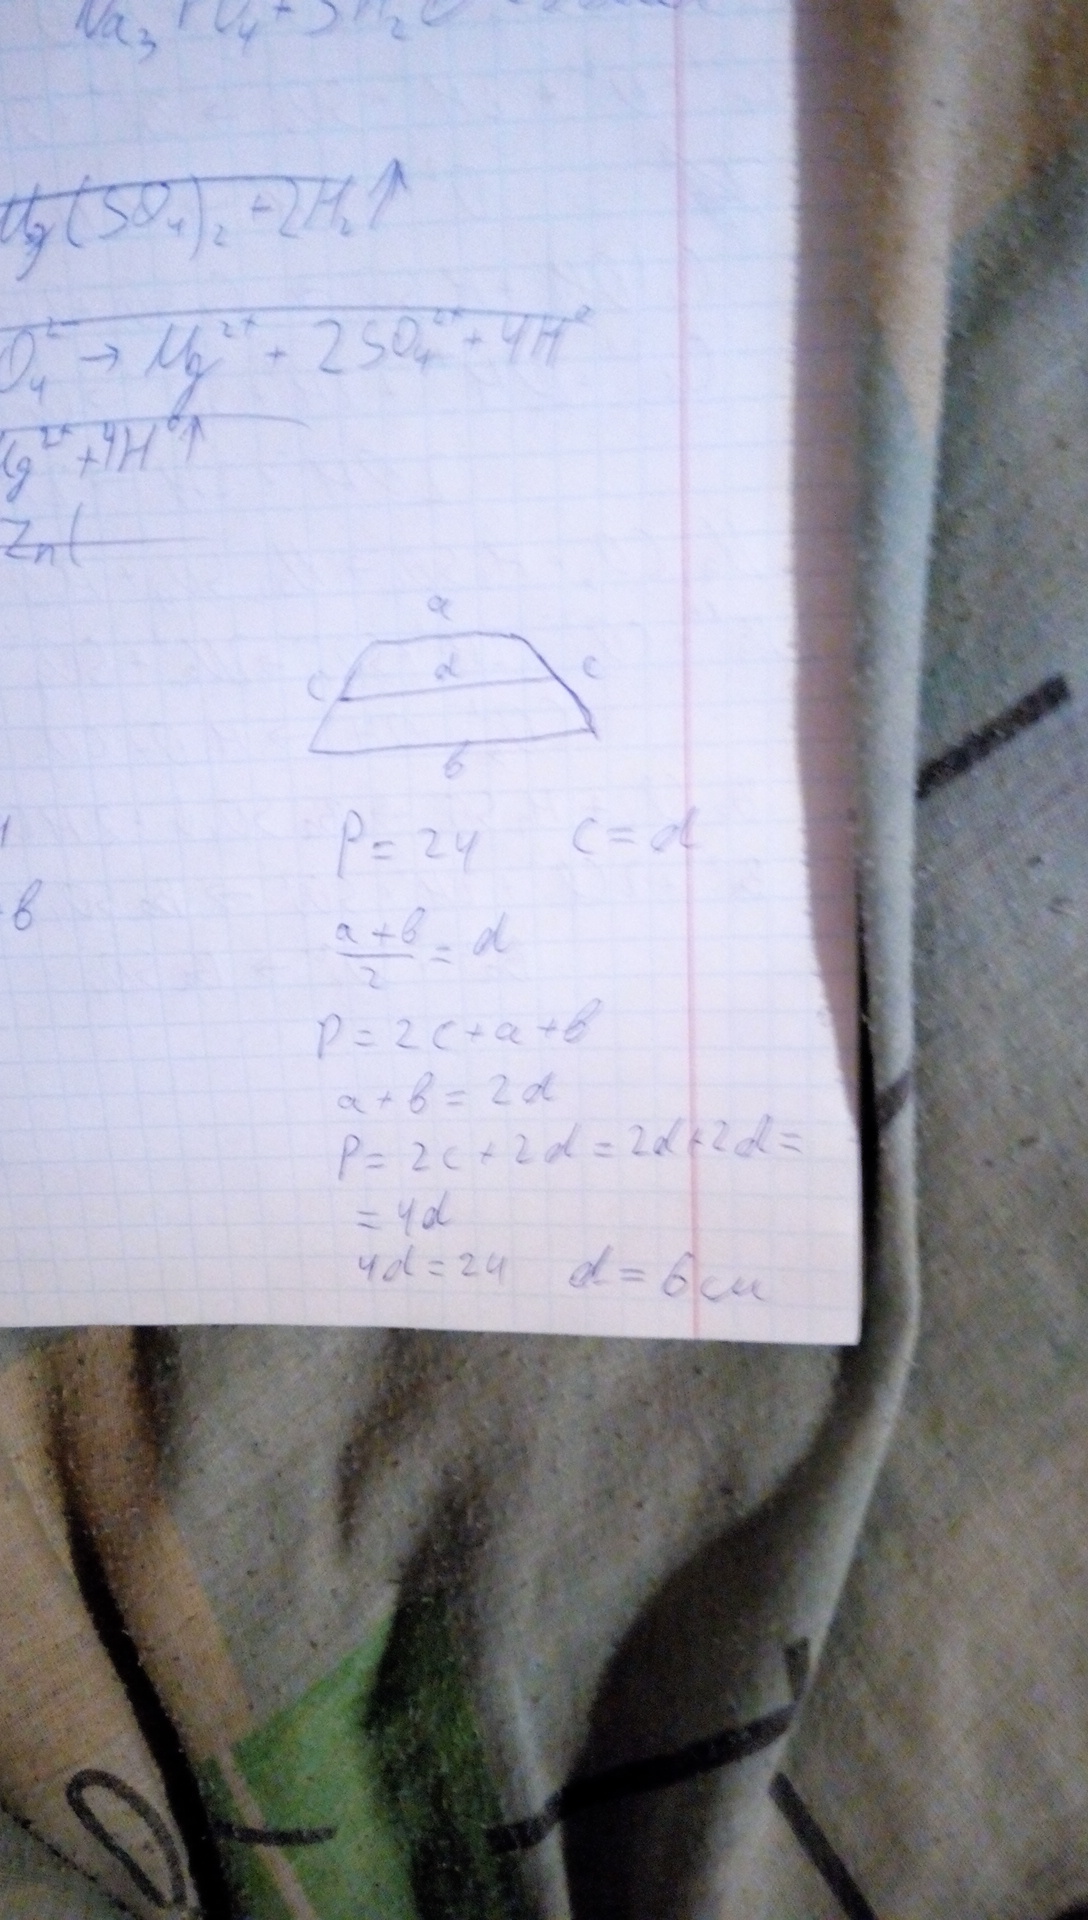 Na₃PO₄ + 3H₂O
Mg(SO₄)₂ + 2H₂↑
O₄²⁻ → Mg²⁺ + 2SO₄²⁺ + 4H⁰
Mg²⁺ + 4H⁰↑
Zn(
a
c d c
в
P = 24 c = d
в
a + в / 2 = d
P = 2c + a + в
a + в = 2d
P = 2c + 2d = 2d + 2d =
= 4d
4d = 24 d = 6 см